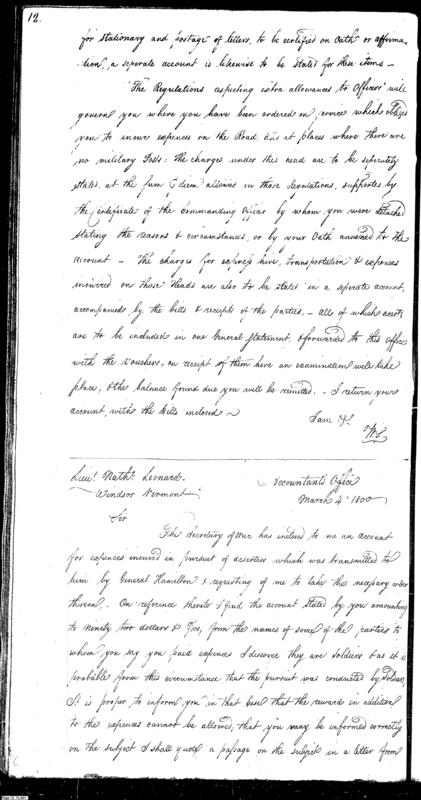 12.
for stationary and postage of letters, to be certified on Oath or affirma-
tion, a seperate account is likewise to be stated for these items —
"The Regulations respecting extra allowances to Officers" will
govern you where you have been ordered on service which obliged
you to incur expences on the Road, at places where there are
no military Posts: The charges under this head are to be seperately
stated, at the sum diem allowed in those Regulations, supported by
the Certificate of the Commanding Officer by whom you were attached
stating the reasons & circumstances, or by your Oath annexed to the
account — The charges for express hire, transportation & expences
incurred on those Heads are also to be stated in a seperate account,
accompanied by the bills & receipts of the parties, — all of which accots
are to be included in one General Statement, & forwarded to this Office
with the vouchers, on receipt of them here an examination will take
place, & the balance found due you will be remitted. — I return your
account, with the bills inclosed ~
I am &c.
W.S.
Lieut. Nathl. Leonard.
Windsor Vermont
Accountants Office
March 4th 1800
Sir
The Secretary of War has inclosed to me an account
for expences incurred in pursuit of deserters which was transmitted to
him by General Hamilton & requesting of me to take the necessary order
thereon. — On reference thereto I find the account stated by you amounting
to ninety two dollars & from the names of some of the parties to
whom you say you paid expences I discover they are soldiers & as it is
probable from this circumstance that the pursuit was conducted by Soldiers,
It is proper to inform you in that case that the rewards in addition
to the expences cannot be allowed, that you may be informed correctly
on the subject I shall quote a passage on the subject in a letter from